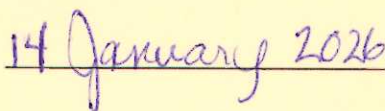 14 January 2026